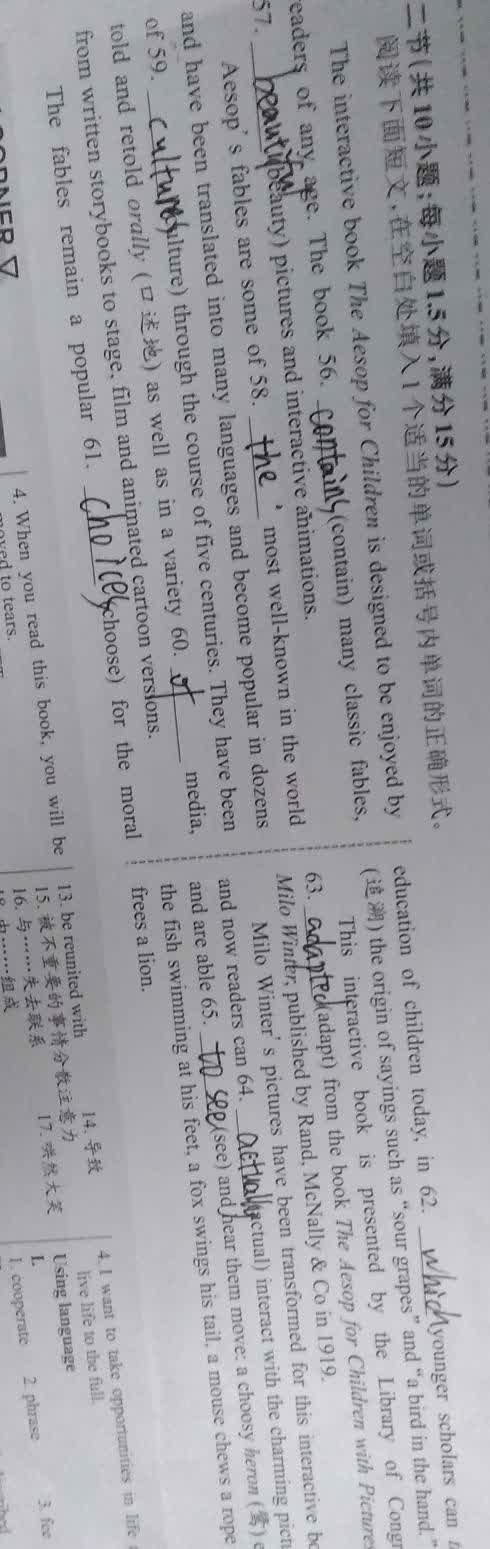 二节(共10小题;每小题1.5分,满分15分)
阅读下面短文,在空白处填入1个适当的单词或括号内单词的正确形式。
The interactive book The Aesop for Children is designed to be enjoyed by
readers of any age. The book 56. contains (contain) many classic fables,
57. beautiful (beauty) pictures and interactive animations.
Aesop's fables are some of 58. the most well-known in the world
and have been translated into many languages and become popular in dozens
of 59. cultures (culture) through the course of five centuries. They have been
told and retold orally (口述地) as well as in a variety 60. of media,
from written storybooks to stage, film and animated cartoon versions.
The fables remain a popular 61. choices (choose) for the moral
education of children today, in 62. which younger scholars can
(追溯) the origin of sayings such as "sour grapes" and "a bird in the hand."
This interactive book is presented by the Library of Congr
63. adapted (adapt) from the book The Aesop for Children with Pictures
Milo Winter, published by Rand, McNally & Co in 1919.
Milo Winter's pictures have been transformed for this interactive bo
and now readers can 64. actually (actual) interact with the charming pictu
and are able 65. to see (see) and hear them move: a choosy heron (鹭) e
the fish swimming at his feet, a fox swings his tail, a mouse chews a rope
frees a lion.
CORNER ▽
4. When you read this book, you will be
moved to tears.
13. be reunited with 14. 导致
15. 被不重要的事情分散注意力
16. 与……失去联系 17. 哄然大笑
4. I want to take opportunities in life
live life to the full.
Using language
I.
1. cooperate 2. phrase 3. fee